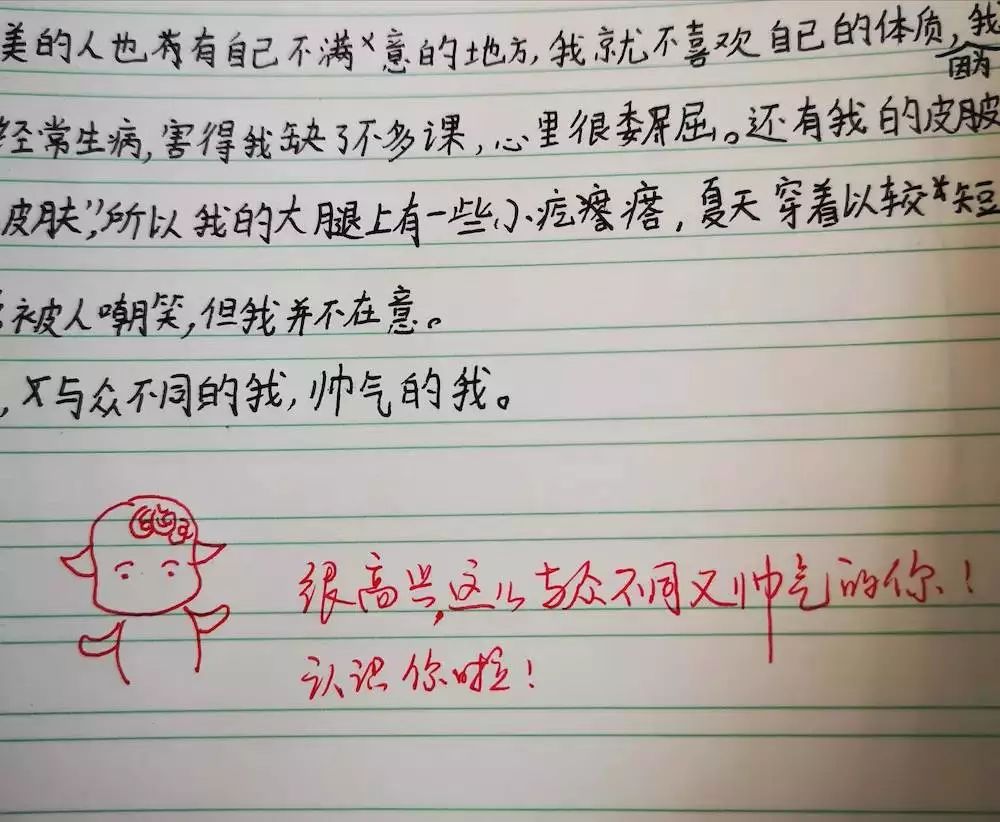 美的人也有自己不满意的地方,我就不喜欢自己的体质,因为我
经常生病,害得我缺了不多课,心里很委屈。还有我的皮肤
皮肤”,所以我的大腿上有一些小疙瘩,夏天穿着以较短
被人嘲笑,但我并不在意。
,与众不同的我,帅气的我。
很高兴,这么与众不同又帅气的你!
认识你啦!